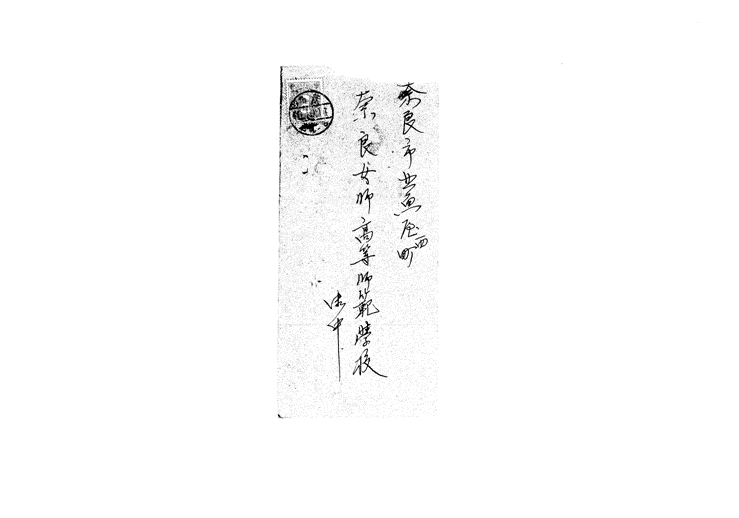 奈良市北魚屋西町
奈良女師高等師範学校
御中